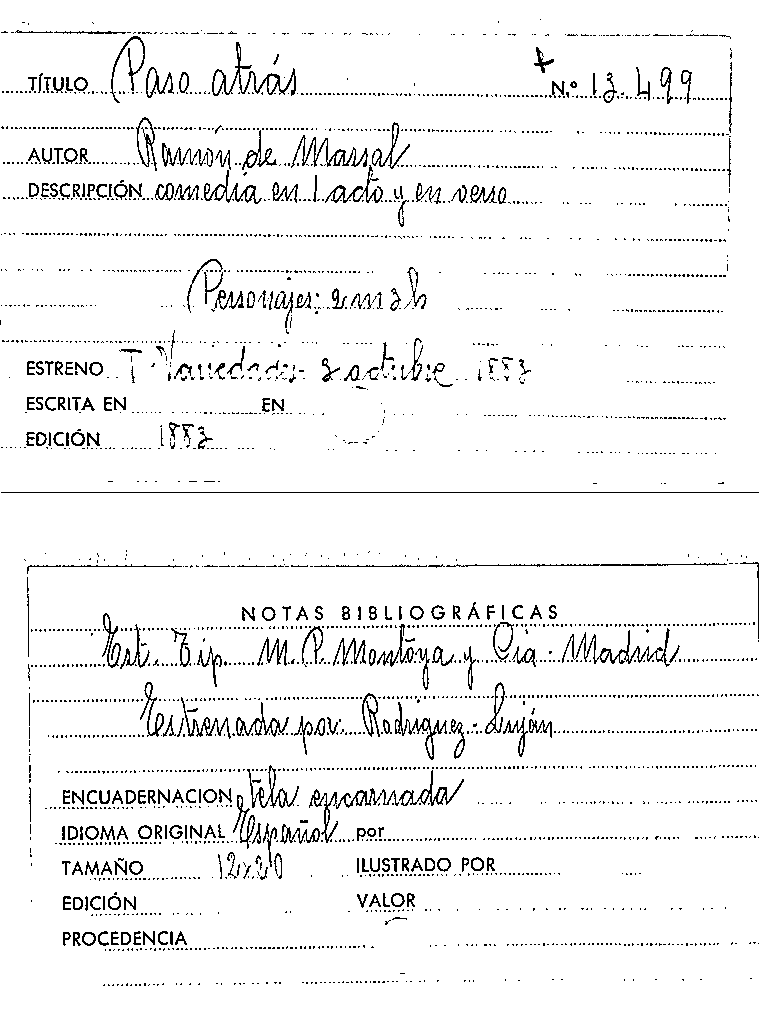 TÍTULO Paso atrás N.º 13.499
AUTOR Ramón de Marsal
DESCRIPCIÓN comedia en 1 acto y en verso
Personajes: 2 m 3 h
ESTRENO T. Variedades 3 octubre 1883
ESCRITA EN EN
EDICIÓN 1883
NOTAS BIBLIOGRÁFICAS
Est. Tip. M. P. Montoya y Cia. Madrid
Estrenada por: Rodriguez - Luján
ENCUADERNACION tela encarnada
IDIOMA ORIGINAL Español por
TAMAÑO 12x20 ILUSTRADO POR
EDICIÓN VALOR
PROCEDENCIA